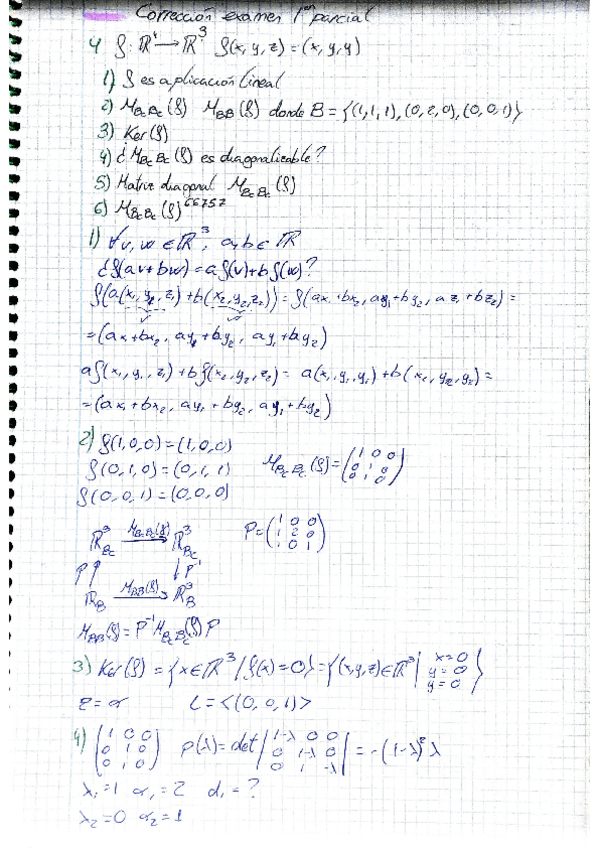 Corrección examen 1er parcial
4 f: ℝ¹ → ℝ³ f(x, y, z) = (x, y, y)
1) f es aplicación lineal
2) M_BcBc(f) M_BB(f) donde B = {(1,1,1), (0,2,0), (0,0,1)}
3) Ker(f)
4) ¿M_BcBc(f) es diagonalizable?
5) Matriz diagonal M_BcBc(f)
6) M_BcBc(f)^66757
1) ∀v, w ∈ ℝ³, a, b ∈ ℝ
¿f(av+bw) = a f(v) + b f(w)?
f(a(x₁, y₁, z₁) + b(x₂, y₂, z₂)) = f(ax₁+bx₂, ay₁+by₂, az₁+bz₂) =
= (ax₁+bx₂, ay₁+by₂, ay₁+by₂)
a f(x₁, y₁, z₁) + b f(x₂, y₂, z₂) = a(x₁, y₁, y₁) + b(x₂, y₂, y₂) =
= (ax₁+bx₂, ay₁+by₂, ay₁+by₂)
2) f(1,0,0) = (1,0,0)
f(0,1,0) = (0,1,1) M_BcBc(f) = (1 0 0 / 0 1 0 / 0 1 0)
f(0,0,1) = (0,0,0)
ℝ³_Bc M_BcBc(f) → ℝ³_Bc P = (1 0 0 / 1 2 0 / 1 0 1)
P ↑ ↓ P⁻¹
ℝ_B M_BB(f) → ℝ³_B
M_BB(f) = P⁻¹ M_BcBc(f) P
3) Ker(f) = {x ∈ ℝ³ / f(x) = 0} = {(x, y, z) ∈ ℝ³ | x = 0 y = 0 y = 0}
z = α L = <(0, 0, 1)>
4) (1 0 0 / 0 1 0 / 0 1 0) p(λ) = det |1-λ 0 0 / 0 1-λ 0 / 0 1 -λ| = -(1-λ)² λ
λ₁ = 1 α₁ = 2 d₁ = ?
λ₂ = 0 α₂ = 1